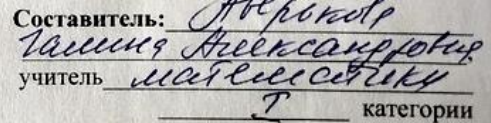 Составитель: Аверькова
Галина Александровна
учитель математики
I категории